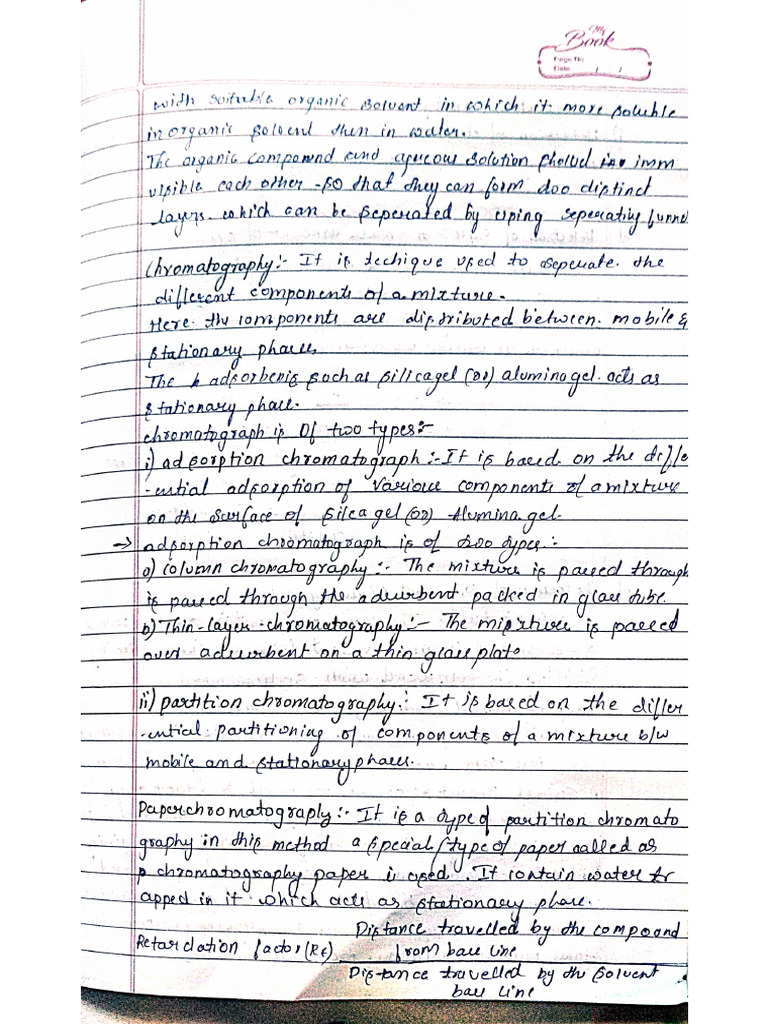 My
Book
Page No
Date / /
with suitable organic solvent in which it more soluble
in organic solvent then in water.
The organic compound and aqueous solution sholud imm
visible each other so that they can form doo distinct
layers which can be seperated by using seperating funnel
Chromatography:- It is techique used to seperate the
different components of a mixture.
Here the components are distributed between mobile &
stationary phases,
The adsorbenis such as silicagel (or) alumina gel. acts as
stationary phase.
chromatograph is Of two types:-
i) adsorption chromatograph :- It is based on the diffe
-ential adsorption of various components of a mixture
on the surface of silca gel (or) Alumina gel.
→ adsorption chromatograph is of two types :
a) column chromatography :- The mixture is passed through
is passed through the adsurbent packed in glass tube.
b) Thin-layer-chromatography :- The mixture is passed
over adsurbent on a thin glass plate
ii) partition chromatography: It is based on the differ
-ential partitioning of components of a mixture b/w
mobile and stationary phases.
Paperchromatography :- It is a type of partition chromato
graphy in this method a special type of paper called as
chromatography paper is used. It contain water tr
apped in it which acts as stationary phase.
Distance travelled by the compound
Retardation factor (Rf) from base line
Distance travelled by the solvent
base line